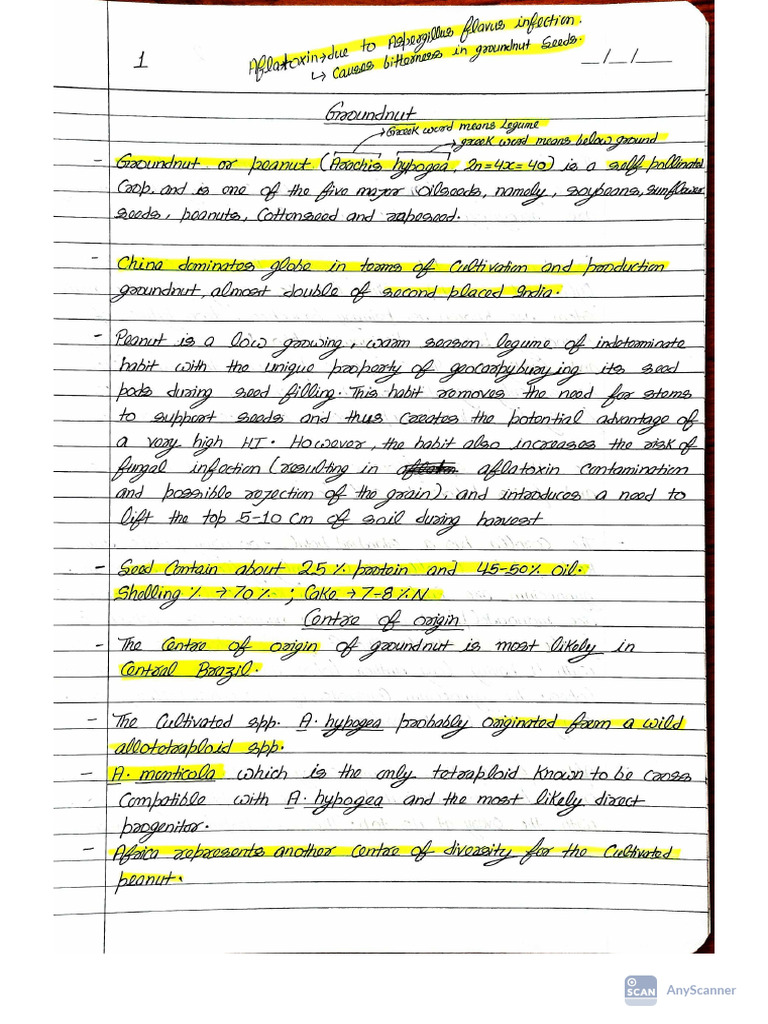 1
Aflatoxin→due to Aspergillus flavus infection.
↳ Causes bitterness in groundnut seeds.
_/_/__
Groundnut
→Greek word means Legume
→greek word means below ground
- Groundnut or peanut (Arachis hypogea, 2n=4x=40) is a self pollinated
Crop, and is one of the five major oilseeds, namely, soybeans, sunflower
seeds, peanuts, Cottonseed and rapeseed.
- China dominates globe in terms of Cultivation and production
groundnut, almost double of second placed India.
- Peanut is a low growing, warm season legume of indeterminate
habit with the unique property of geocarpyburying its seed
pods during seed filling. This habit removes the need for stems
to support seeds and thus creates the potential advantage of
a very high HI. However, the habit also increases the risk of
fungal infection (resulting in aflatoxin contamination
and possible rejection of the grain), and introduces a need to
lift the top 5-10 cm of soil during harvest
- Seed Contain about 25% protein and 45-50% Oil.
Shelling % → 70% ; Cake → 7-8% N
Centre of origin
- The Centre of origin of groundnut is most likely in
Central Brazil.
- The Cultivated spp. A. hypogea probably originated form a wild
allototraploid spp.
- A. monticola which is the only tetraploid known to be cross
Compatible with A. hypogea and the most likely direct
progenitor.
- Africa represents another centre of diversity for the Cultivated
peanut.
SCAN AnyScanner